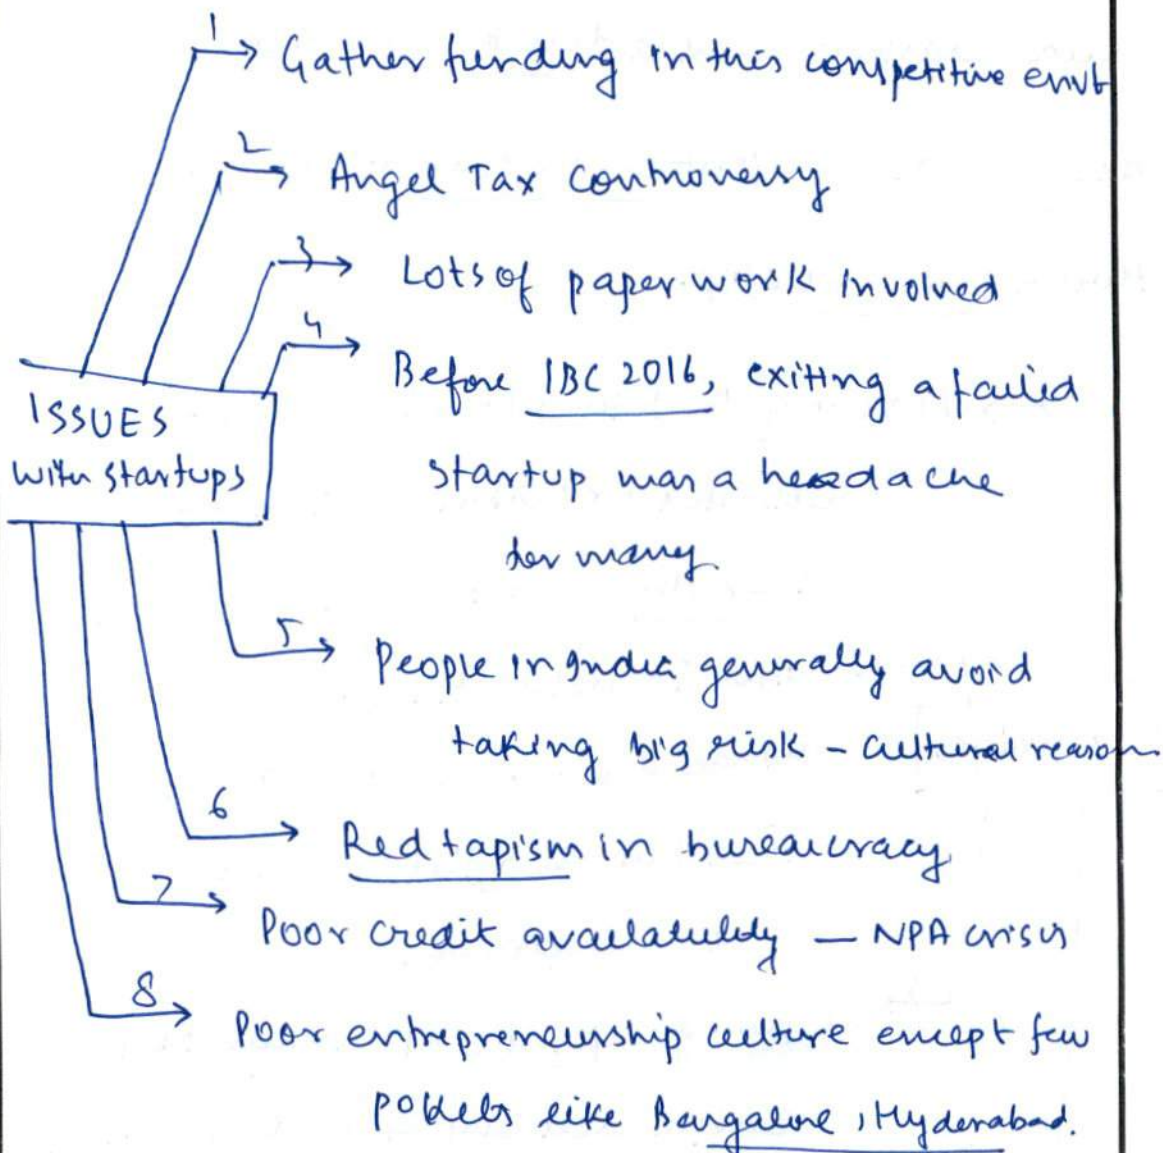 1
Gather funding in this competitive envt
2
Angel Tax controversy
3
Lots of paper work involved
4
Before IBC 2016, exiting a failed
startup was a headache
for many
ISSUES
with startups
5
People in India generally avoid
taking big risk - cultural reason
6
Red tapism in bureaucracy
7
Poor credit availability — NPA crisis
8
Poor entrepreneurship culture except few
pockets like Bangalore, Hyderabad.